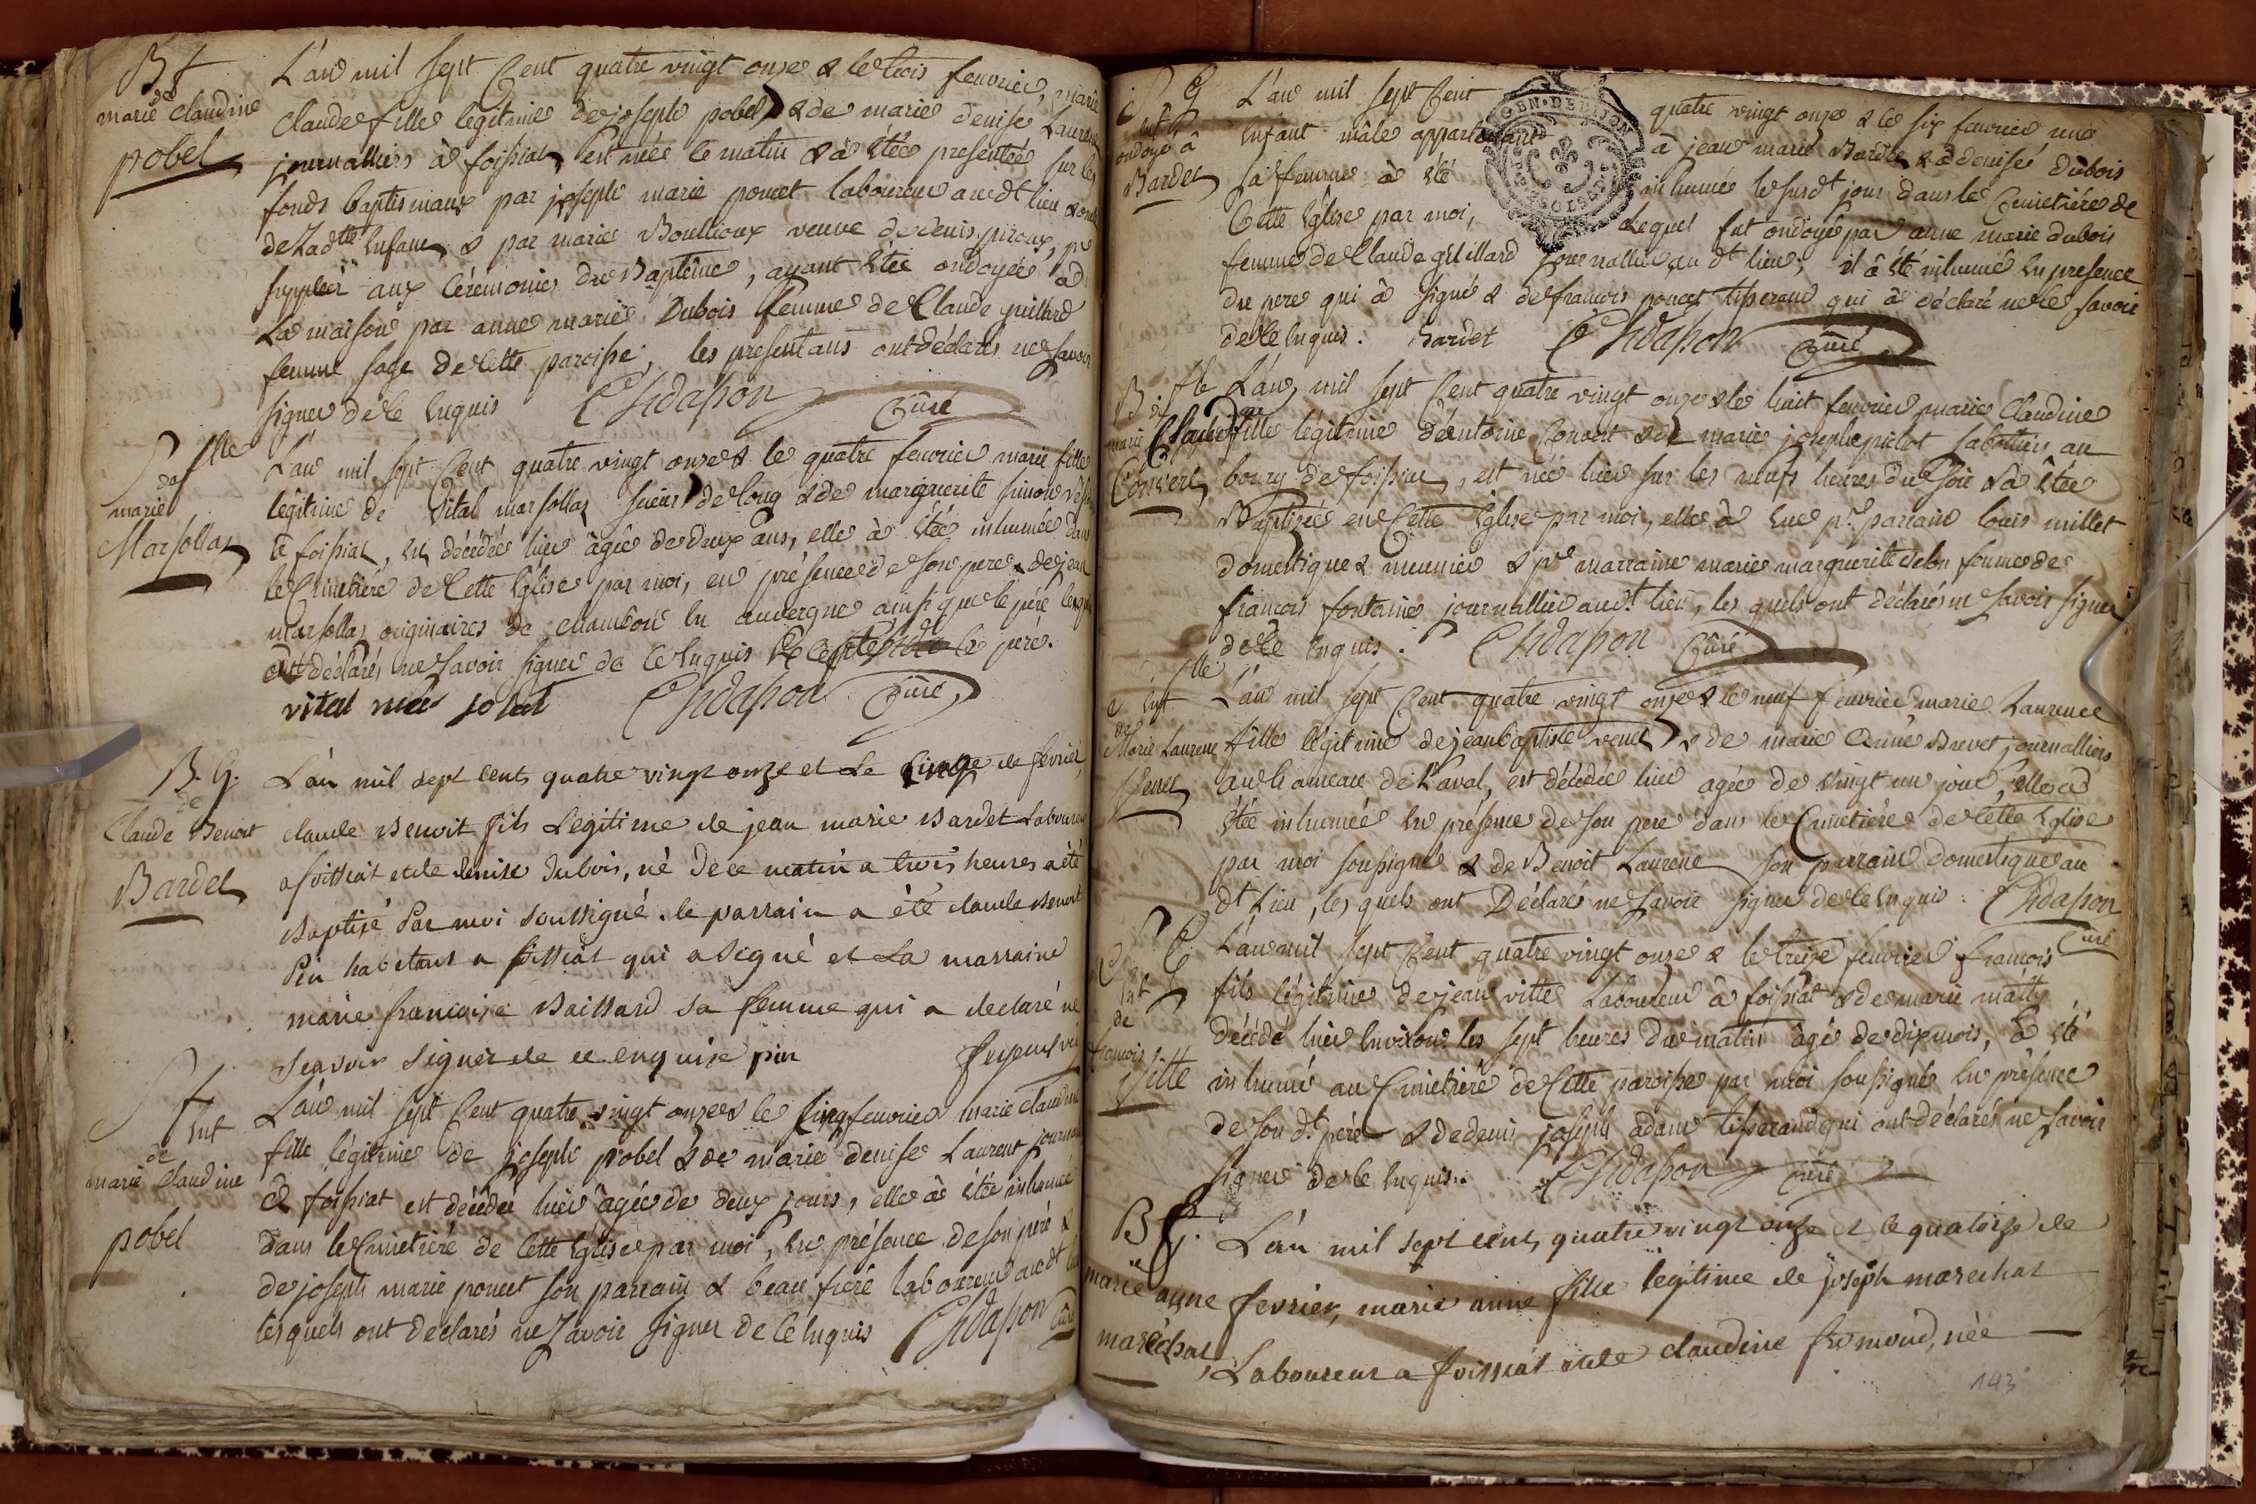 Bt
marie Claudine
pobel
L'an mil sept Cent quatre vingt onze & le trois feuvrier, marie
Claude fille legitime de joseph pobel & de marie denise Laurent
journalliers à foissiat, est née le matin & à étée presentée sur les
fonds baptismaux par joseph marie poncet laboureur audt lieu
de Ladtte Enfant, & par marie Boullioux veuve de denis piroux, pr
suppléer aux Cérémonies du Baptême, ayant étée ondoyée à
La maison par anne marie Dubois femme de Claude guillard
femme sage de Cette paroisse, les presentans ont déclarés ne savoir
signer de ce Enquis Chidasson Curé
S flle
de
marie
Marsollas
L'an mil sept Cent quatre vingt onze & le quatre feuvrier marie fille
légitime de Vital marsollas sieur de long & de marguerite simon
à foissiat, est décédée hier âgée de deux ans, elle à étée inhumée dans
le Cimetière de Cette Eglise par moi, en présence de son pere & de jean
marsollas originaires de chambon en auvergne ainsi que le père
ont déclarés ne savoir signer de ce Enquis le père.
vital mar solat Chidasson Curé
B. G.
de
Claude Benoit
Bardet
L'an mil sept cent quatre vingt onze et Le cinq de fevrier
claude Benoit fils Legitime de jean marie Bardet Laboureur
a foissiat et de denise Dubois, né de ce matin a trois heures a été
Baptisé Par moi soussigné. le parrain a été claude Benoit
Pin habitant a foissiat qui a signé et La marraine
marie francoise Baissard sa femme qui a declaré ne
scavoir signer de ce enquise pin
S f
Ent
de
marie Claudine
pobel
L'an mil sept Cent quatre vingt onze & le Cinq feuvrier marie claudine
fille légitime de joseph pobel & de marie denise Laurent
à foissiat est décédée hier âgée de deux jours, elle à étée inhumée
dans le Cimetière de Cette Eglise par moi, en présence de son père &
de joseph marie poncet son parrain & beau frere laboureur audt
lesquels ont declarés ne savoir signer de ce Enquis Chidasson Curé
S G
Ent
ondoyé à
Bardet
L'an mil sept Cent quatre vingt onze & le six feuvrier, un
Enfant mâle appartenant à jean marie Bardet & à denise dubois
sa femme à été inhumé le susdt jour dans le Cimetière de
Cette Eglise par moi, Lequel fut ondoyé par anne marie dubois
femme de Claude guillard journallier au dt lieu; il à été inhumé En presence
du pere qui à signé & de francois poncet tisserand qui à déclaré ne le savoir
de ce Enquis. Bardet Chidasson Curé
B flle
de
marie Claudine
Convert
L'an mil sept Cent quatre vingt onze & le huit feuvrier marie Claudine
fille légitime d'entoine Convert & de marie joseph pichot sabottiers au
bourg de foissiat, est née hier sur les neufs heures du soir & à étée
Baptisée en Cette Eglise par moi, elle à Eue pr parrain louis millet
domestique & meunier & pr marraine marie marguerite femme de
francois fontaine journallier audt lieu, les quels ont déclarés ne savoir signer
de ce Enquis. Chidasson Curé
flle
Ent
de
Marie Laurence
Venet
L'an mil sept Cent quatre vingt onze & le neuf feuvrier marie Laurence
fille légitime de jean baptiste venet & de marie Brevet journalliers
au hameau de Laval, est décédée hier agée de vingt un jour, elle a
étée inhumée En présence de son pere dans le Cimetière de Cette Eglise
par moi soussigné & de Benoit Laurent son parrain domestique au
dt Lieu, les quels ont Déclarés ne savoir signer de ce Enquis. Chidasson
Curé
S G
Ent
de
francois
Vitte
L'an mil sept Cent quatre vingt onze & le treize feuvrier francois
fils légitime de jean vitte Laboureur à foissiat & de marie
décédé hier Environ les sept heures du matin âgé de dix mois, à été
inhumé au Cimetière de Cette paroisse par moi soussigné En présence
de son dt père & de denis joseph adam tisserand qui ont déclarés ne savoir
signer de ce Enquis. Chidasson Curé
B f.
marie anne
maréchal
L'an mil sept cent quatre vingt onze et le quatorze de
fevrier, marie anne fille legitime de joseph marechal
Laboureur a foissiat et de claudine fromond, née
143